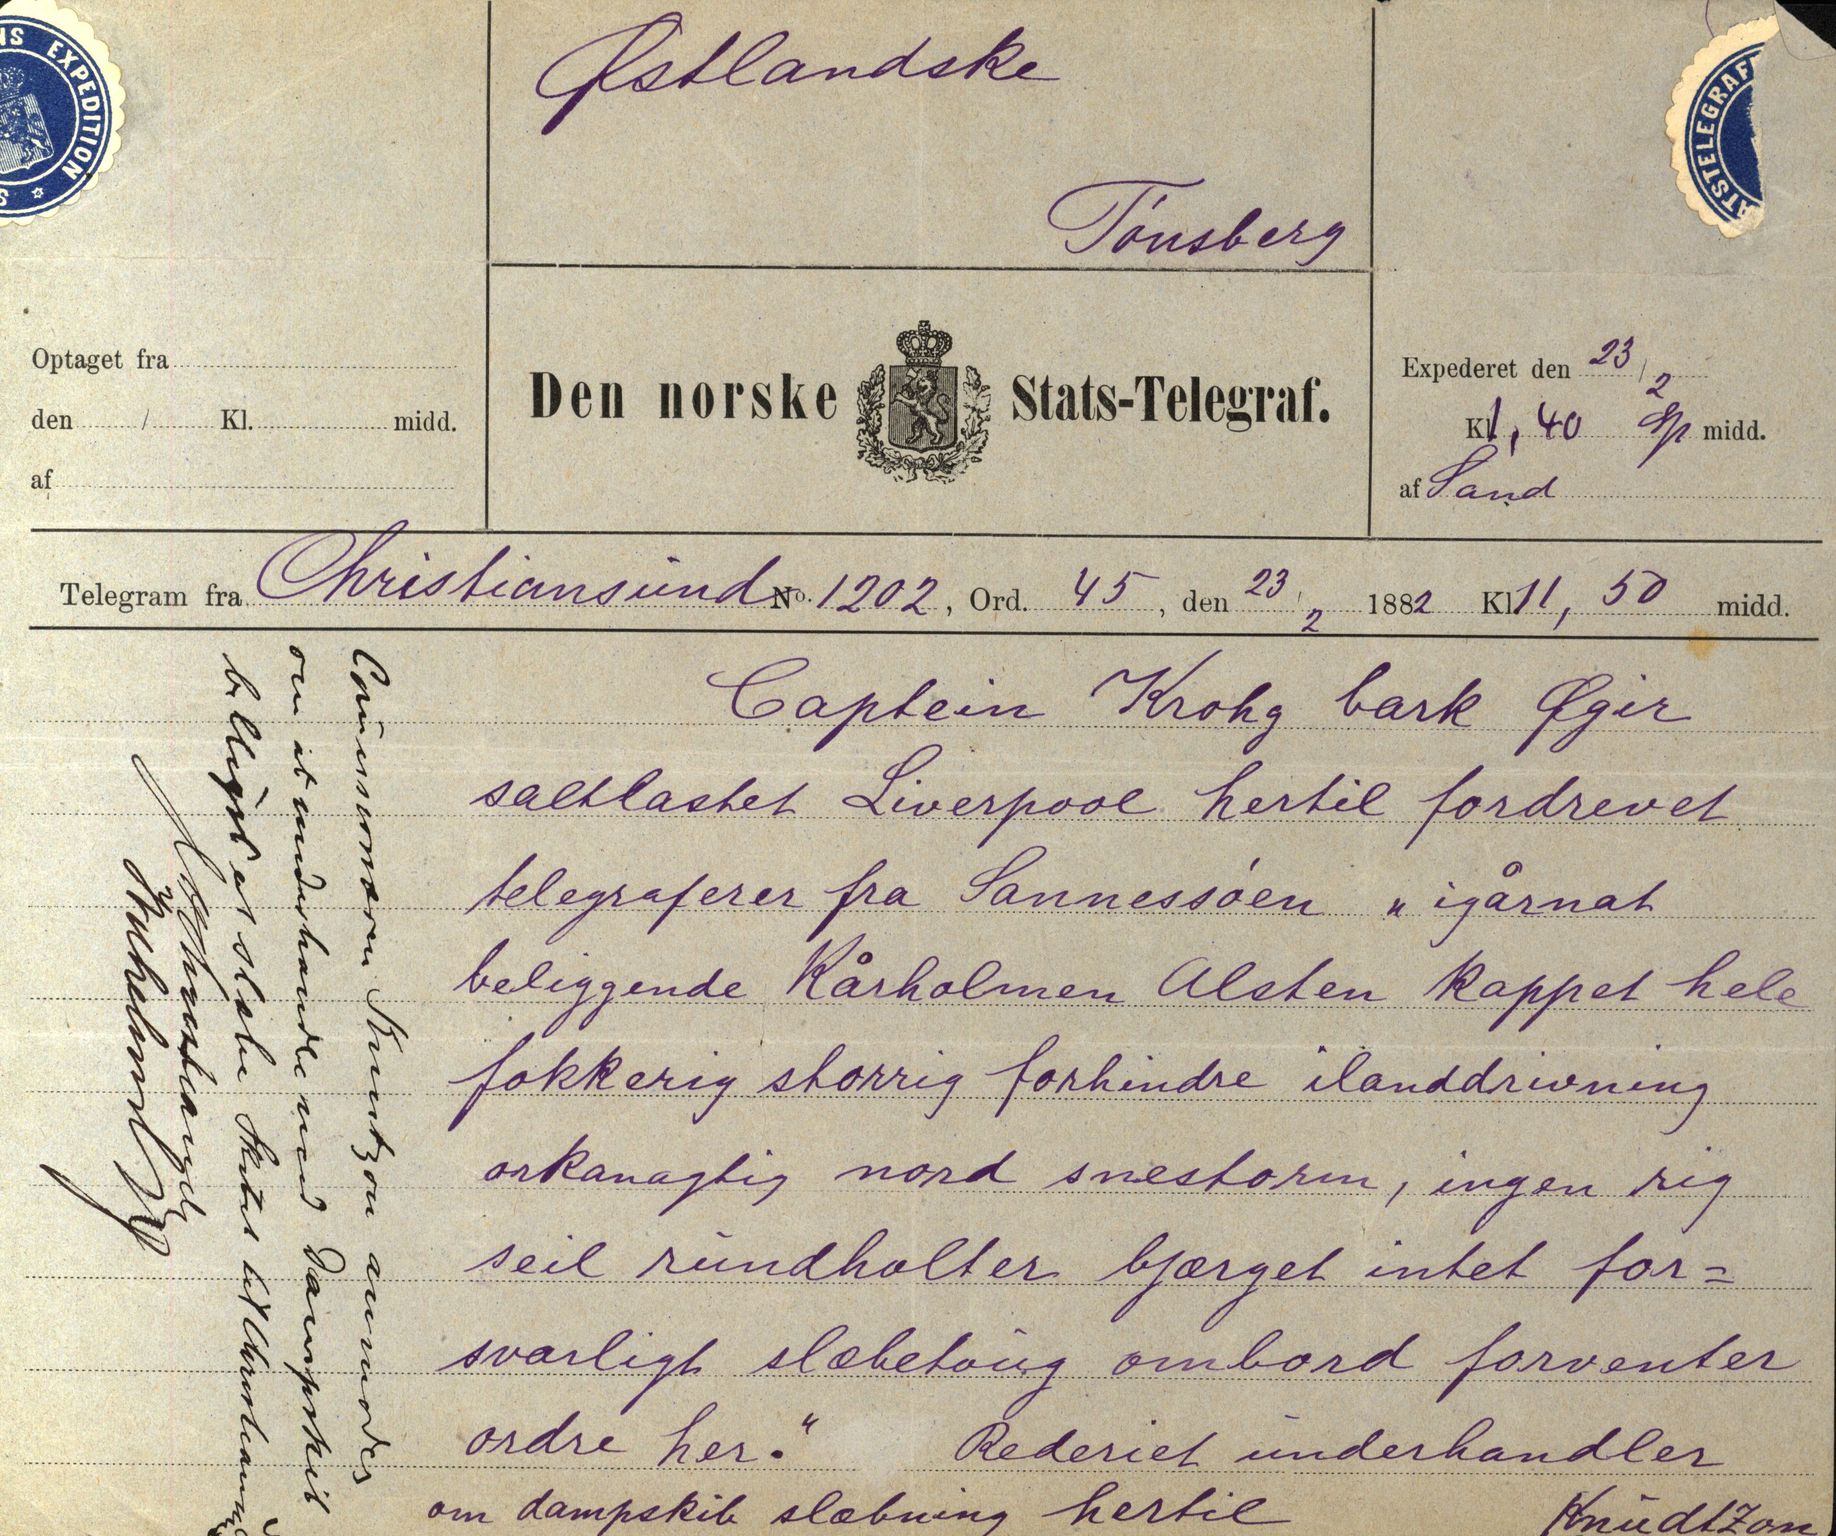 NS EXPEDITION
ATSTELEGRAF
Østlandske
Tönsberg
Optaget fra
den / Kl. midd.
af
Den norske Stats-Telegraf.
Expederet den 23/2
Kl. 1,40 midd.
af Sand
Telegram fra Christiansund No. 1202, Ord. 45, den 23/2 1882 Kl 11,50 midd.
Captein Krohg bark Øgir
saltlastet Liverpool hertil fordrevet
telegraferer fra Sannessöen „igårnat
beliggende Kårholmen Alsten kappet hele
fokkerig storrig forhindre ilanddrivning
orkanagtig nord snestorm, ingen rig
seil rundholter bjærget intet for=
svarligt slæbetoug ombord forventer
ordre her." Rederiet underhandler
om dampskib slæbning hertil Knudtzon
anmodes
om at underhandle med Dampskib
billigst at slæbe